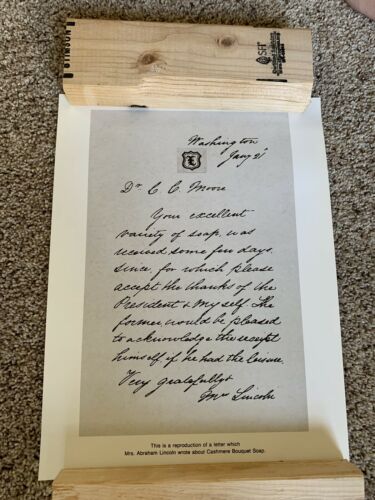 STIMSON
Washington
Jany 21
L
Dr C. C. Moore
Your excellent
variety of soap, was
received some few days,
since, for which please
accept the thanks of the
President & myself. The
former, would be pleased
to acknowledge the receipt
himself if he had the leisure.
Very gratefully
Mrs Lincoln
This is a reproduction of a letter which
Mrs. Abraham Lincoln wrote about Cashmere Bouquet Soap.